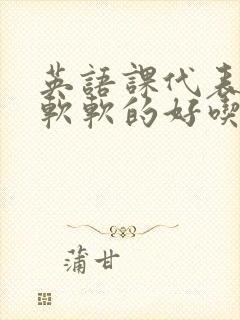 英語課代表
軟軟的好喫
蒲甘